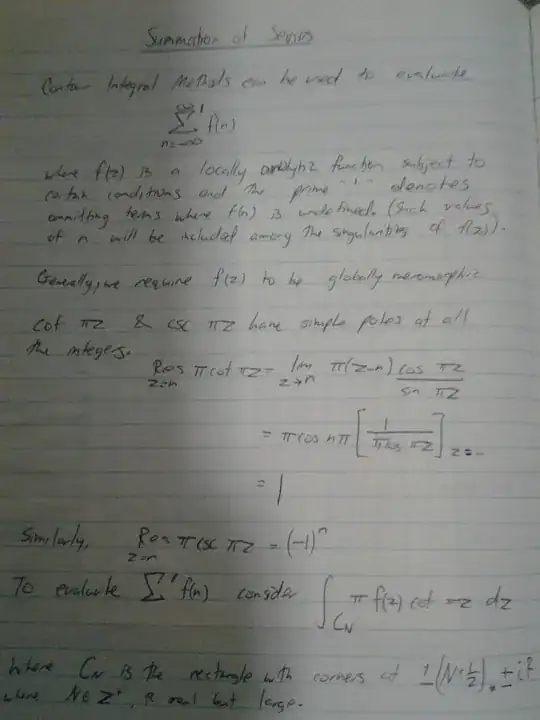 Summation of Series
Contour Integral Methods can be used to evaluate
∞ ′
∑ f(n)
n=-∞
where f(z) is a locally analytic function subject to
certain conditions and the prime "′" denotes
ommitting terms where f(n) is undefined. (Such values
of n will be included among the singularities of f(z)).
Generally, we require f(z) to be globally meromorphic
cot πz & csc πz have simple poles at all
the integers.
Res π cot πz = lim π(z-n) cos πz / sin πz
z=n z→n
= π cos nπ [ 1 / π cos πz ] z=
= 1
Similarly, Res π csc πz = (-1)^n
z=n
To evaluate ∑′ f(n) consider ∫ π f(z) cot πz dz
C_N
where C_N is the rectangle with corners at ±(N+1/2) ± i
where N∈Z⁺, R real but large.